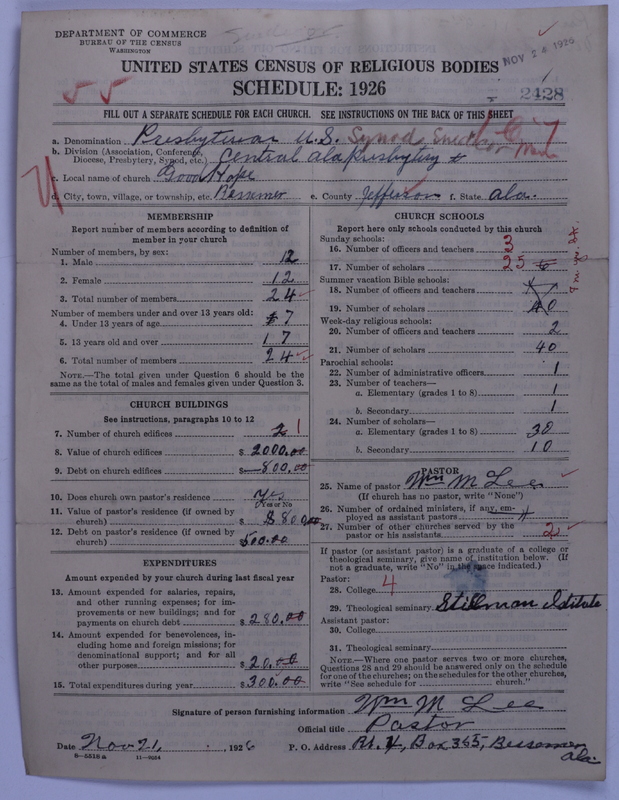 DEPARTMENT OF COMMERCE
BUREAU OF THE CENSUS
WASHINGTON
NOV 24 1926
UNITED STATES CENSUS OF RELIGIOUS BODIES
SCHEDULE: 1926
1
2428
55
FILL OUT A SEPARATE SCHEDULE FOR EACH CHURCH. SEE INSTRUCTIONS ON THE BACK OF THIS SHEET
a. Denomination Presbyterian U.S. Synod
b. Division (Association, Conference, Diocese, Presbytery, Synod, etc.) Central Ala Presbytery
c. Local name of church Good Hope
d. City, town, village, or township, etc. Bessemer e. County Jefferson f. State Ala.
MEMBERSHIP
Report number of members according to definition of member in your church
Number of members, by sex:
1. Male 12
2. Female 12
3. Total number of members 24
Number of members under and over 13 years old:
4. Under 13 years of age 7
5. 13 years old and over 17
6. Total number of members 24
NOTE.—The total given under Question 6 should be the same as the total of males and females given under Question 3.
CHURCH BUILDINGS
See instructions, paragraphs 10 to 12
7. Number of church edifices 2 1
8. Value of church edifices $ 2000.00
9. Debt on church edifices $ 800.00
10. Does church own pastor's residence yes
(Yes or No)
11. Value of pastor's residence (if owned by church) $ 800.00
12. Debt on pastor's residence (if owned by church) 500.00
EXPENDITURES
Amount expended by your church during last fiscal year
13. Amount expended for salaries, repairs, and other running expenses; for improvements or new buildings; and for payments on church debt $ 280.00
14. Amount expended for benevolences, including home and foreign missions; for denominational support; and for all other purposes $ 20.00
15. Total expenditures during year $ 300.00
CHURCH SCHOOLS
Report here only schools conducted by this church
Sunday schools:
16. Number of officers and teachers 3
17. Number of scholars 25
Summer vacation Bible schools:
18. Number of officers and teachers
19. Number of scholars 40
Week-day religious schools:
20. Number of officers and teachers 2
21. Number of scholars 40
Parochial schools:
22. Number of administrative officers 1
23. Number of teachers—
a. Elementary (grades 1 to 8) 1
b. Secondary 1
24. Number of scholars—
a. Elementary (grades 1 to 8) 30
b. Secondary 10
PASTOR
25. Name of pastor Wm M Lee
(If church has no pastor, write "None")
26. Number of ordained ministers, if any, employed as assistant pastors
27. Number of other churches served by the pastor or his assistants 2
If pastor (or assistant pastor) is a graduate of a college or theological seminary, give name of institution below. (If not a graduate, write "No" in the space indicated.)
Pastor:
28. College 4
29. Theological seminary Stillman Istitute
Assistant pastor:
30. College
31. Theological seminary
NOTE.—Where one pastor serves two or more churches, Questions 28 and 29 should be answered only on the schedule for one of the churches; on the schedules for the other churches, write "See schedule for church."
Signature of person furnishing information Wm M Lee
Official title Pastor
Date Nov 21, 1926 P. O. Address Rt. 4, Box 365, Bessemer Ala.
8—5518a 11—9024